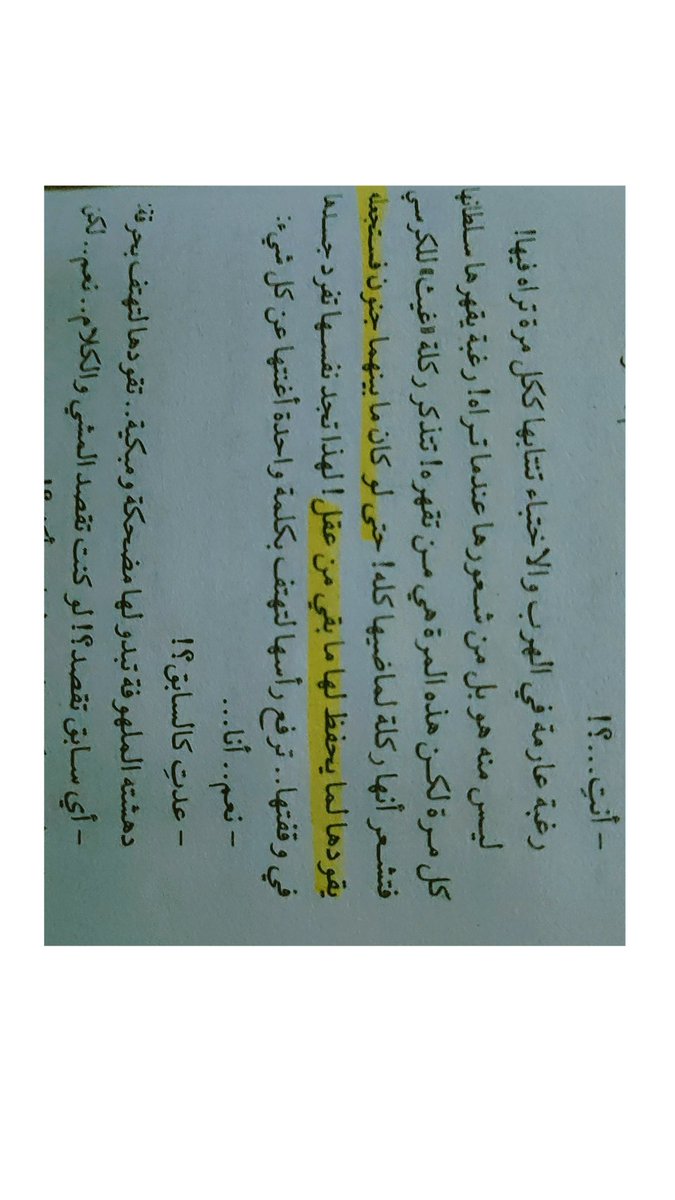 - أنتِ...؟!
رغبة عارمة في الهرب والاختباء تنتابها ككل مرة تراه فيها!
ليس منه هو بل من شعورها عندما تراه! رغبة يقهرها سلطانها
كل مرة لكن هذه المرة هي من تقهره! تتذكر ركلة «غيث» للكرسي
فتشعر أنها ركلة لماضيها كله! حتى لو كان ما بينهما جنون فستجعله
يقودها لما يحفظ لها ما بقي من عقل! لهذا تجد نفسها تفرد جسدها
في وقفتها.. ترفع رأسها لتهتف بكلمة واحدة أغنتها عن كل شيء:
- نعم.. أنا...
- عدتِ كالسابق؟!
دهشته الملهوفة تبدو لها مضحكة ومبكية.. تقودها لتهتف بحرقة:
- أي سابق تقصد؟! لو كنت تقصد المشي والكلام.. نعم.. لكن